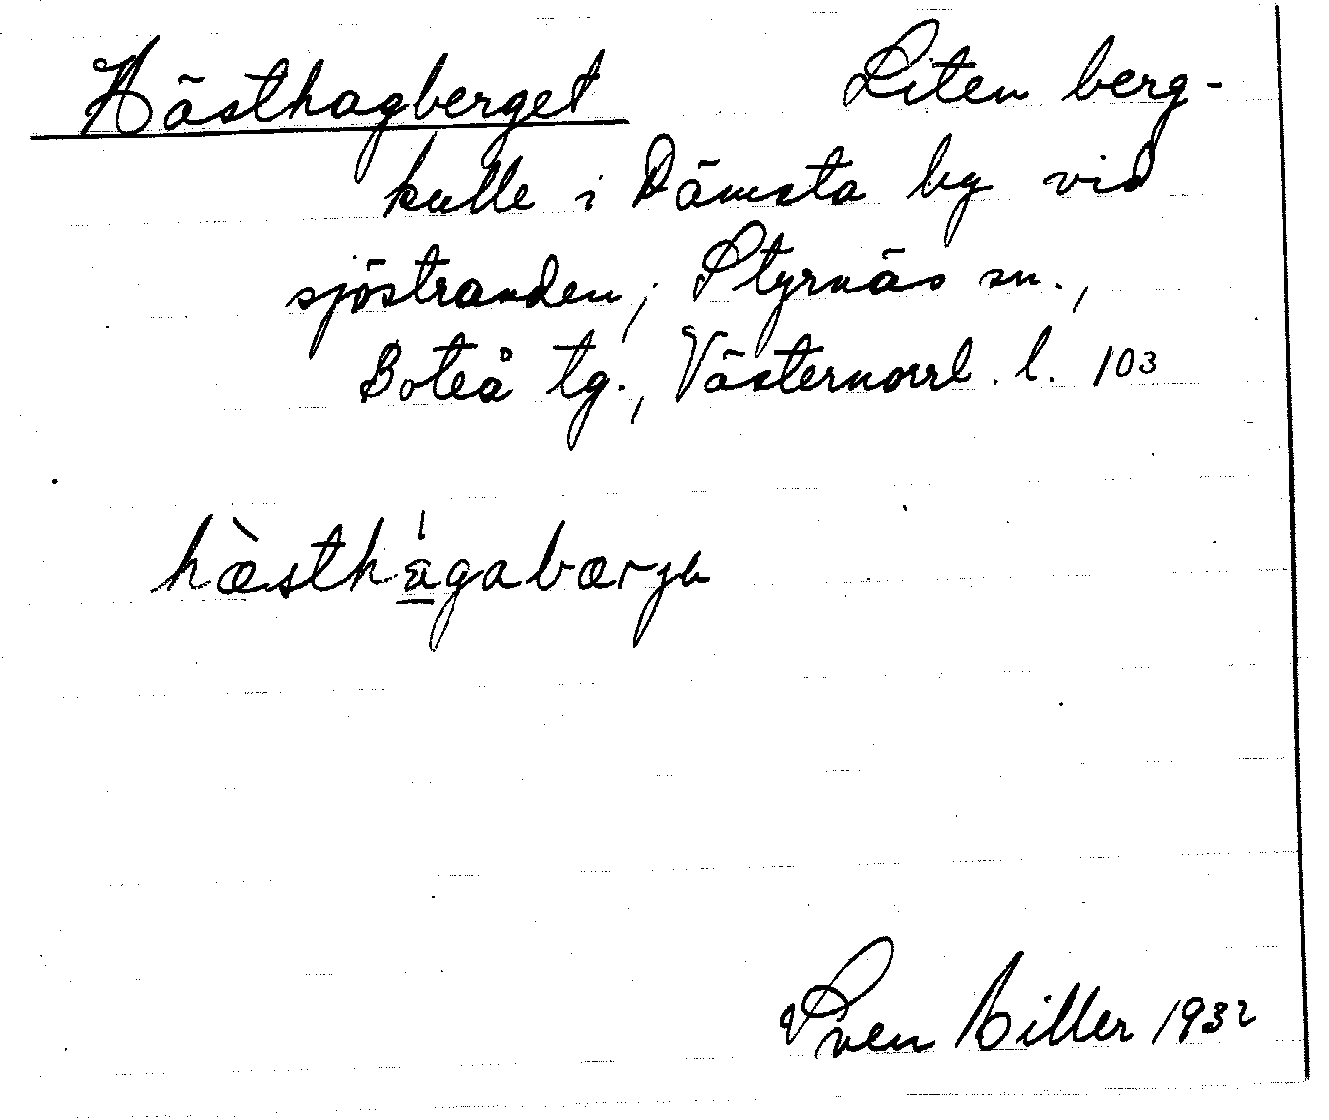 Hästhagberget Liten berg-
kulle i Dämsta by vid
sjöstranden; Styrnäs sn.,
Boteå tg., Västernorrl. l. 103
Sven Hiller 1932